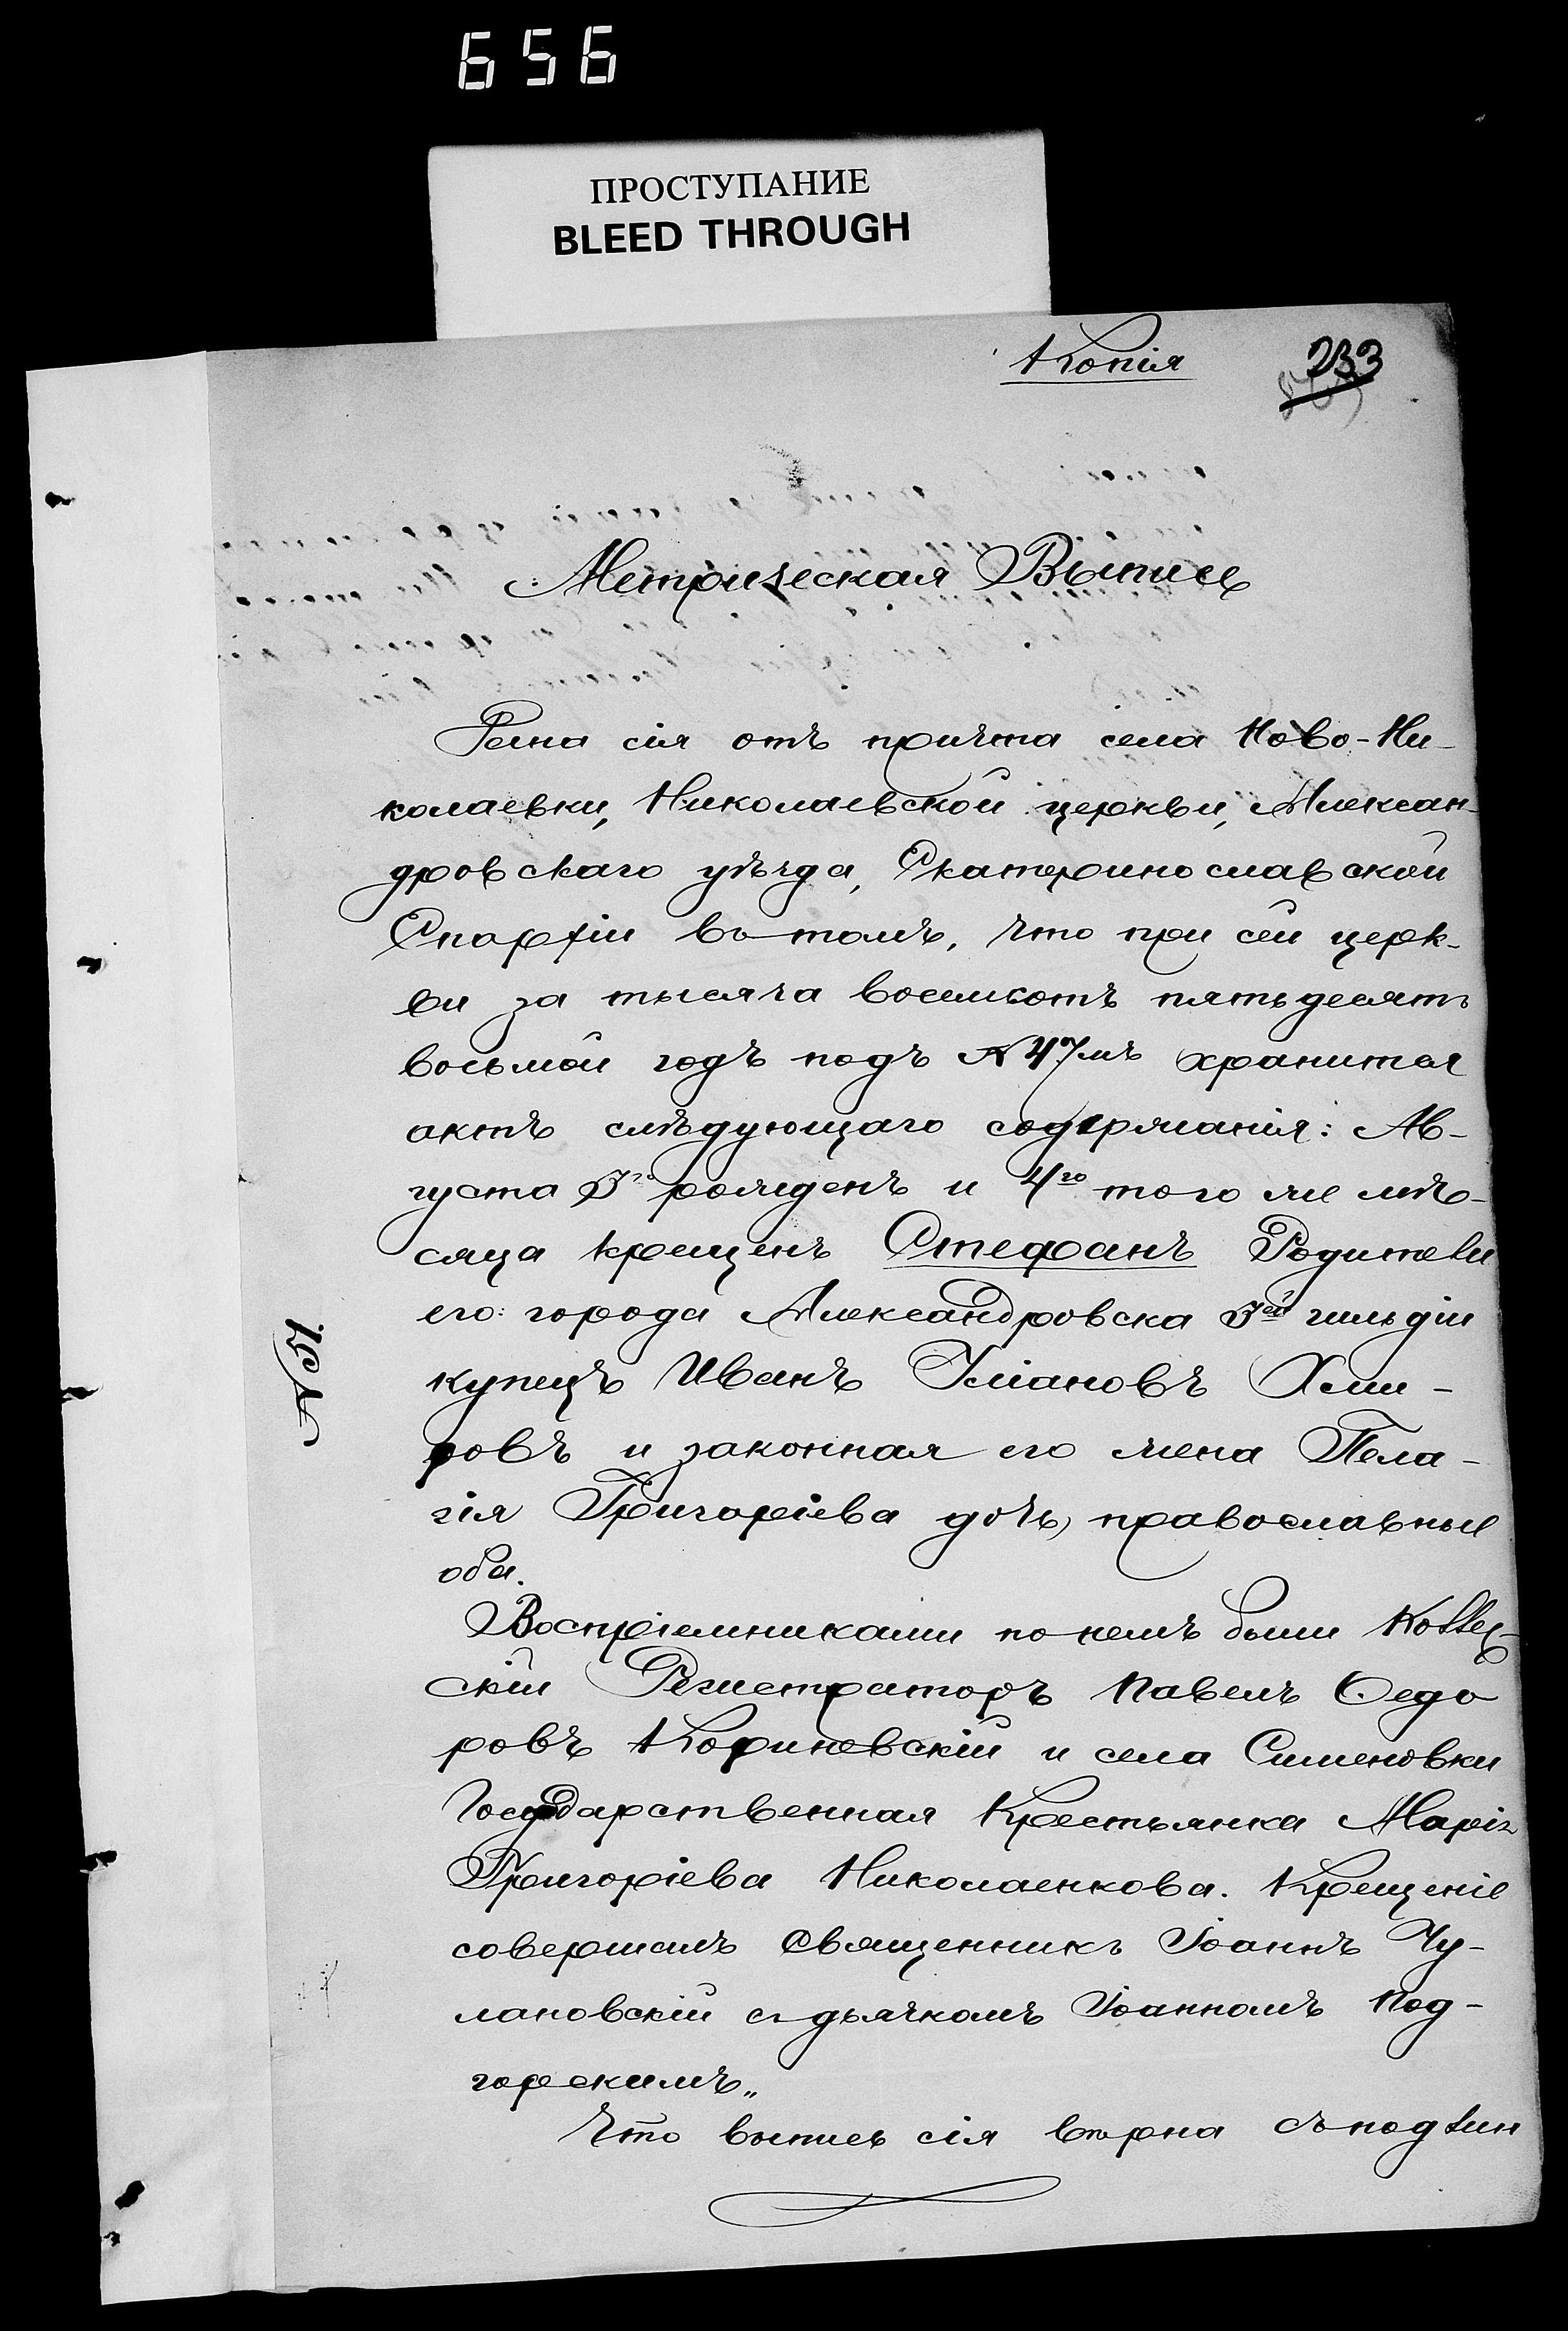 656
ПРОСТУПАНИЕ
BLEED THROUGH
Копія
233
Метрическая Выпись
Дана сія отъ причта села Ново-Ни-
колаевки, Николаевской церкви, Алексан-
дровскаго уѣзда, Екатеринославской
Епархіи въ томъ, что при сей церк-
ви за тысяча восемьсотъ пятьдесятъ
восьмой годъ подъ № 47мъ хранится
актъ слѣдующаго содержанія: Ав-
густа 3го рожденъ и 4го того же мѣ-
сяца крещенъ Стефанъ Родители
его: города Александровска 3ей гильдіи
купецъ Иванъ Уліановъ Хми-
ровъ и законная его жена Пела-
гія Григоріева дочь, православные
оба.
Воспріемниками по немъ были Коллеж-
скій Регистраторъ Павелъ Ѳедо
ровъ Кориневскій и села Сименовки
Государственная Крестьянка Марія
Григоріева Николаенкова. Крещеніе
совершалъ Священникъ Іоаннъ Чу-
лановскій съ дьячкомъ Іоанномъ Под-
горскимъ„
Что выпись сія вѣрна съ подлин
№ 51.